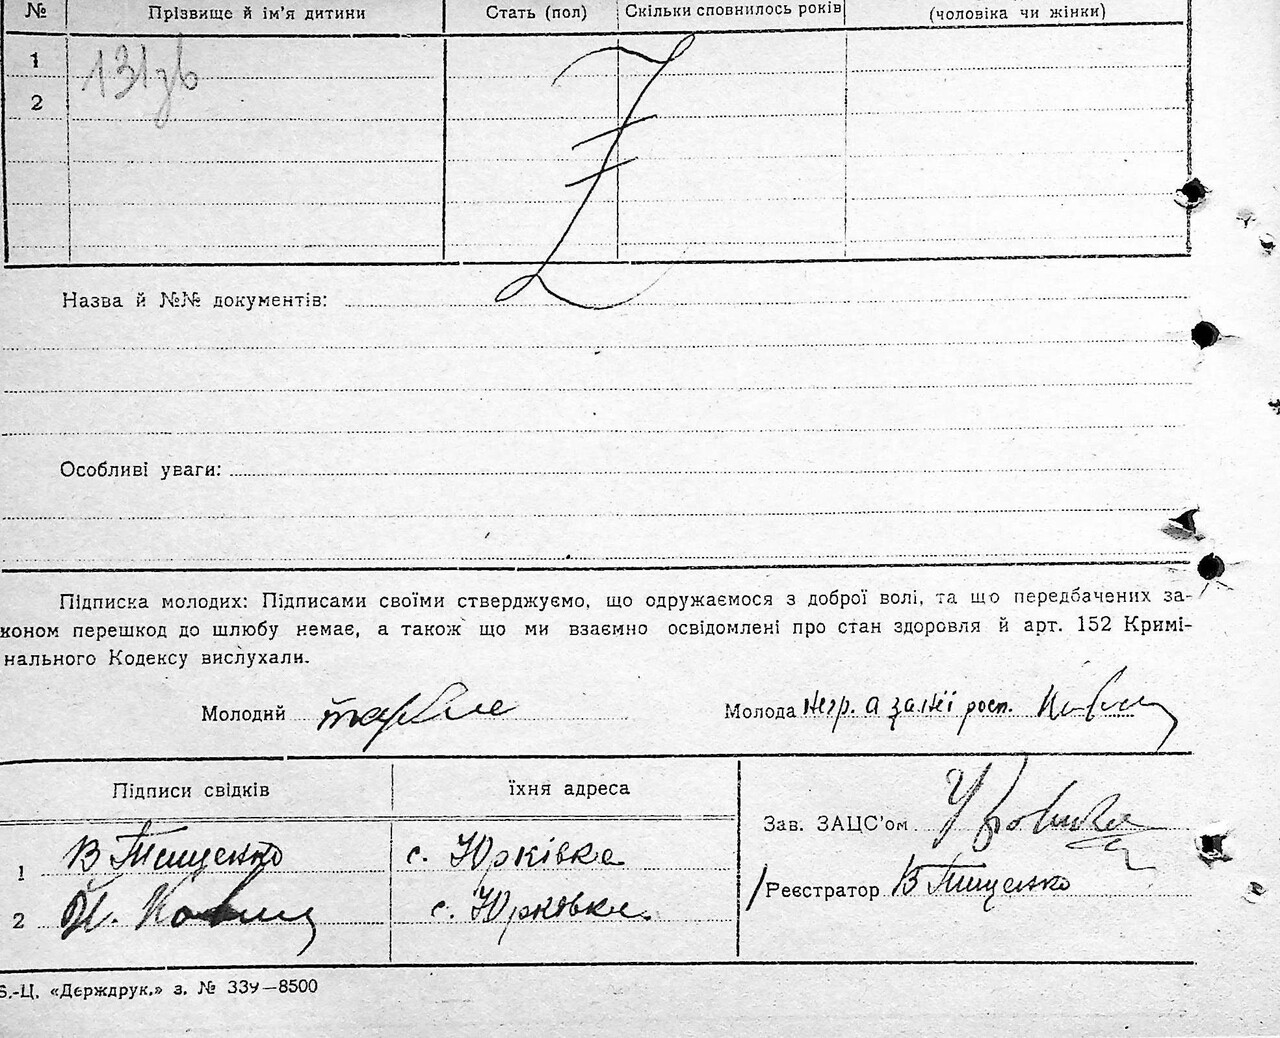 № Прізвище й ім'я дитини Стать (пол) Скільки сповнилось років (чоловіка чи жінки)
1
2
Назва й №№ документів:
Особливі уваги:
Підписка молодих: Підписами своїми стверджуємо, що одружаємося з доброї волі, та що передбачених за-
коном перешкод до шлюбу немає, а також що ми взаємно освідомлені про стан здоровля й арт. 152 Кримі-
нального Кодексу вислухали.
Молодий
Молода негр. а за неї росп.
Підписи свідків їхня адреса
Зав. ЗАЦС'ом
1 В Тищенко с. Юрківка
Реєстратор В Тищенко
2 с. Юрковка
Б.-Ц. «Держдрук.» з. № 339—8500